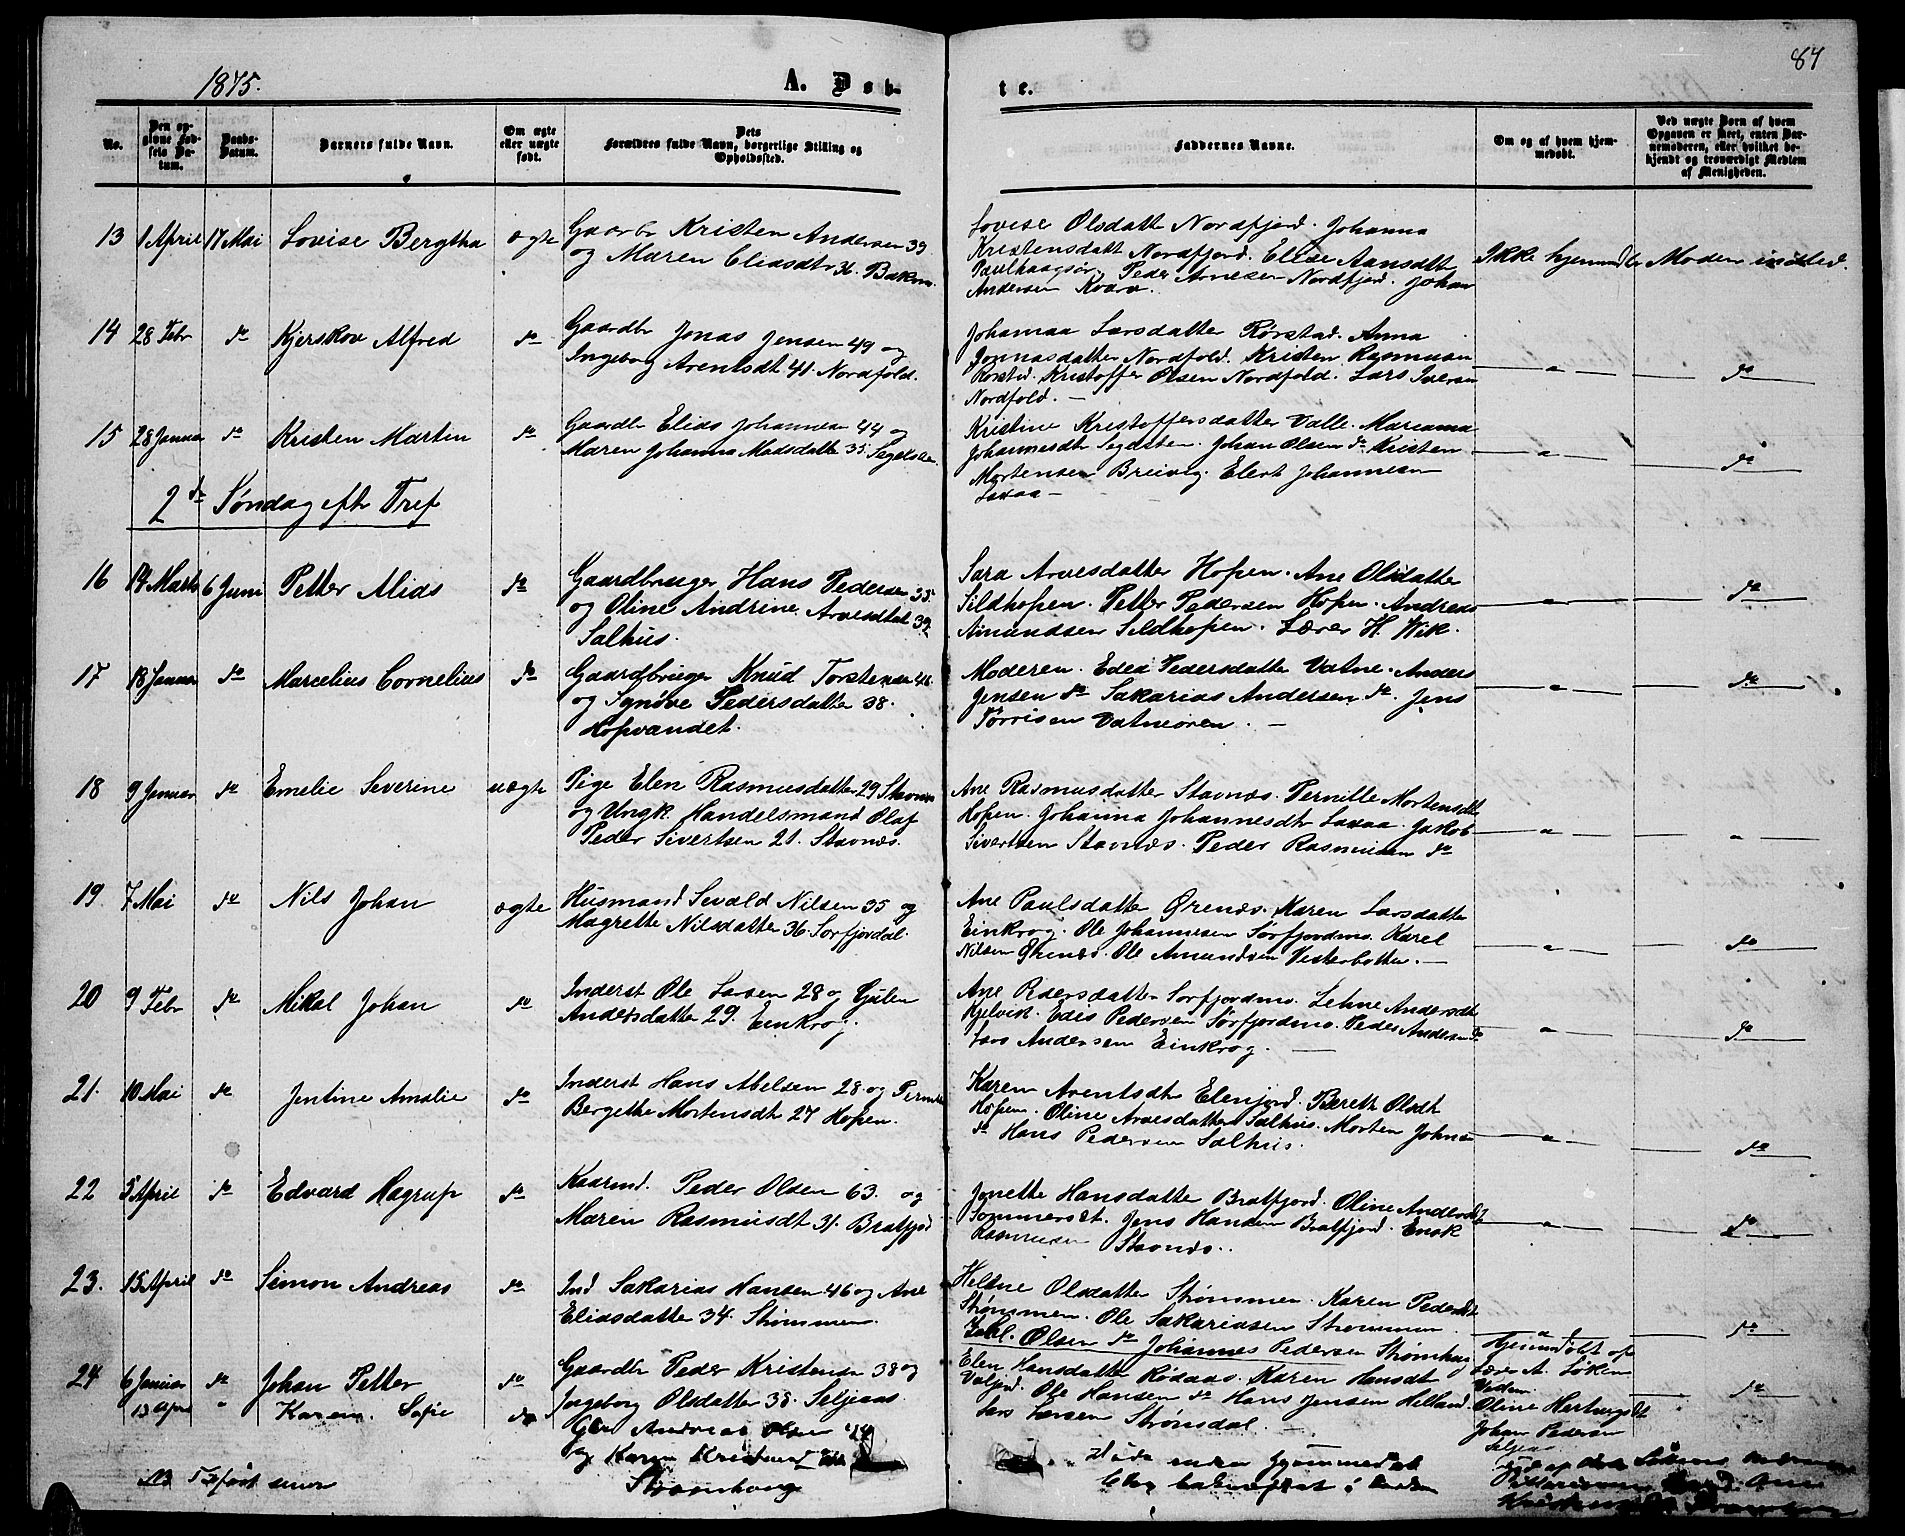 87
1875.
A. Døb-
te.
No.
Den op-
givne Fød-
sels Da-
tum.
Daabs-
Datum.
Barnets fulde Navn.
Om ægte
eller uægte
født.
Dets
Forældres fulde Navn, borgerlige Stilling og
Opholdssted.
Faddernes Navne.
Om og af hvem hjem-
medøbt.
Ved uægte Børn af hvem
Opgaven er skeet, enten Bar-
nemoderen, eller hvilket be-
kjendt og troværdigt Medlem
af Menigheden.
13 1 April 17 Mai Lovise Bergtha ægte
Gaardbr Kristen Andersen 39
og Maren Eliasdtr 36.
Lovise Olsdatte Nordfjord. Johanna
Kristensdatt Nordfjord. Elise Aansdatt
Peder Arnesen Nordfjord. Johan
Andersen Kvarv.
Ikke hjemmedbt Moden
14 28 Febr do Kjerskov Alfred do
Gaardbr Jonas Jensen 49 og
Ingeborg Arentsdt 41. Nordfold.
Johanna Larsdatter Rørstad. Anna
Jonnasdatter Nordfold. Kristen Rasmusen
Rørstad. Kristoffer Olsen Nordfold. Lars Iversen
Nordfold. —
— " — do
15 28 Januar do Kristen Martin do
Gaardbr Elias Johannesen 44 og
Maren Johanna Madsdatte 35.
Kristine Kristoffersdatter Valle. Marianna
Johannesdt Segelsten. Johan Olsen do Kristen
Mortensen Breivig. Elert Johannesen
Laxaa —
— " — do
2den Søndag eftr Tref
16 14 Marts 6 Juni Petter Alias do
Gaardbruger Hans Pedersen 35.
og Oline Andrine Arvesdtat 39.
Salhus.
Sara Arvesdatter Hopen. Ane Olsdatte
Sildhopen. Petter Pedersen Hopen. Andreas
Amundsen Sildhopen. Lærer H. Wik.
— " — do
17 18 Januar do Marcelius Cornelius do
Gaardbruger Knud Torstensen 46.
og Synøve Pedersdatter 38.
Hopvandet.
Moderen. Edea Pedersdatte Vatne. Anders
Jensen do Sakarias Andersen do. Jens
Tørrisen Vatneøren. —
— " — do
18 9 Januar do Emelie Severine uægte
Pige Elen Rasmusdatter 29 Stavnes
og Ungk. Handelsmand Olaf
Peder Sivertsen 21. Stavnes.
Ane Rasmusdatter Stavnes. Pernille Mortensdtt
Hopen. Johanna Johannesdtr Laxaa. Jakob
Sivertsen Stavnes. Peder Rasmusen do
— " — "
19. 7 Mai do Nils Johan ægte
Husmand Sevald Nilsen 35 og
Magrette Nilsdatter 36. Sørfjordal.
Ane Paulsdatter Ørenes. Karen Larsdatte
Einkrog. Ole Johannesen Sørfjordmo. Karel
Nilsen Ørenes. Ole Amundsen Vesterbotten. —
— " — do
20 9 Febr do Mikal Johan do
Inderst Ole Larsen 28 og Gjulen
Andersdatter 29. Einkrog.
Ane Pdersdatter Sørfjordmo. Lehne Andersdt
Kjelvik. Edis Pedersen Sørfjordmo. Peder Andersen do
Lars Andersen Einkrog. —
— " — do
21. 10 Mai do Jentine Amalie do
Inderst Hans Abelsen 28. og
Bergithe Mortensdt 27 Hopen.
Karen Arentsdt Elenjord. Bereth Olsdt
Hopen. Oline Arvesdatter Salhus. Morten
do Hans Pedersen Salhus.
— " — do
22 5 April do Edvard Hagrup do
Kaarmd. Peder Olsen 63. og
Maren Rasmusdt 31. Bratfjord
Jonette Hansdatter Bratfjord. Oline Andersdt
Sommerset. Jens Hansen Bratfjord. Enok
Rasmusen Stavnes.
— " — do
23. 15 April do Simon Andreas do
Ind Sakarias Hansen 46 og Ane
Eliasdatter 34. Strømmen.
Hellne Olsdatter Strømmen. Karen Pedersdt
Strømmen. Ole Sakariasen Strømmen
Olsen do Johannes Pedersen Strømhaug
— " — do
24 6 Januar do Johan Petter do
Gaardbr Peder Kristensen 38 og
Ingeborg Olsdatter 38. Seljeaas
Elen Hansdatter Rødaas. Karen Hansdt
Valjord. Ole Hansen do Hans Jensen Helland.
Lars Larsen Strømsdal. —
Hjemmedøbt af
Lærer A. Løken
Oline Hertvigsdt
Johan Pedersen
Seljeaas
— do
13 April " Karen Sofie do
Andreas Olsen
og Karen
Strømhaug